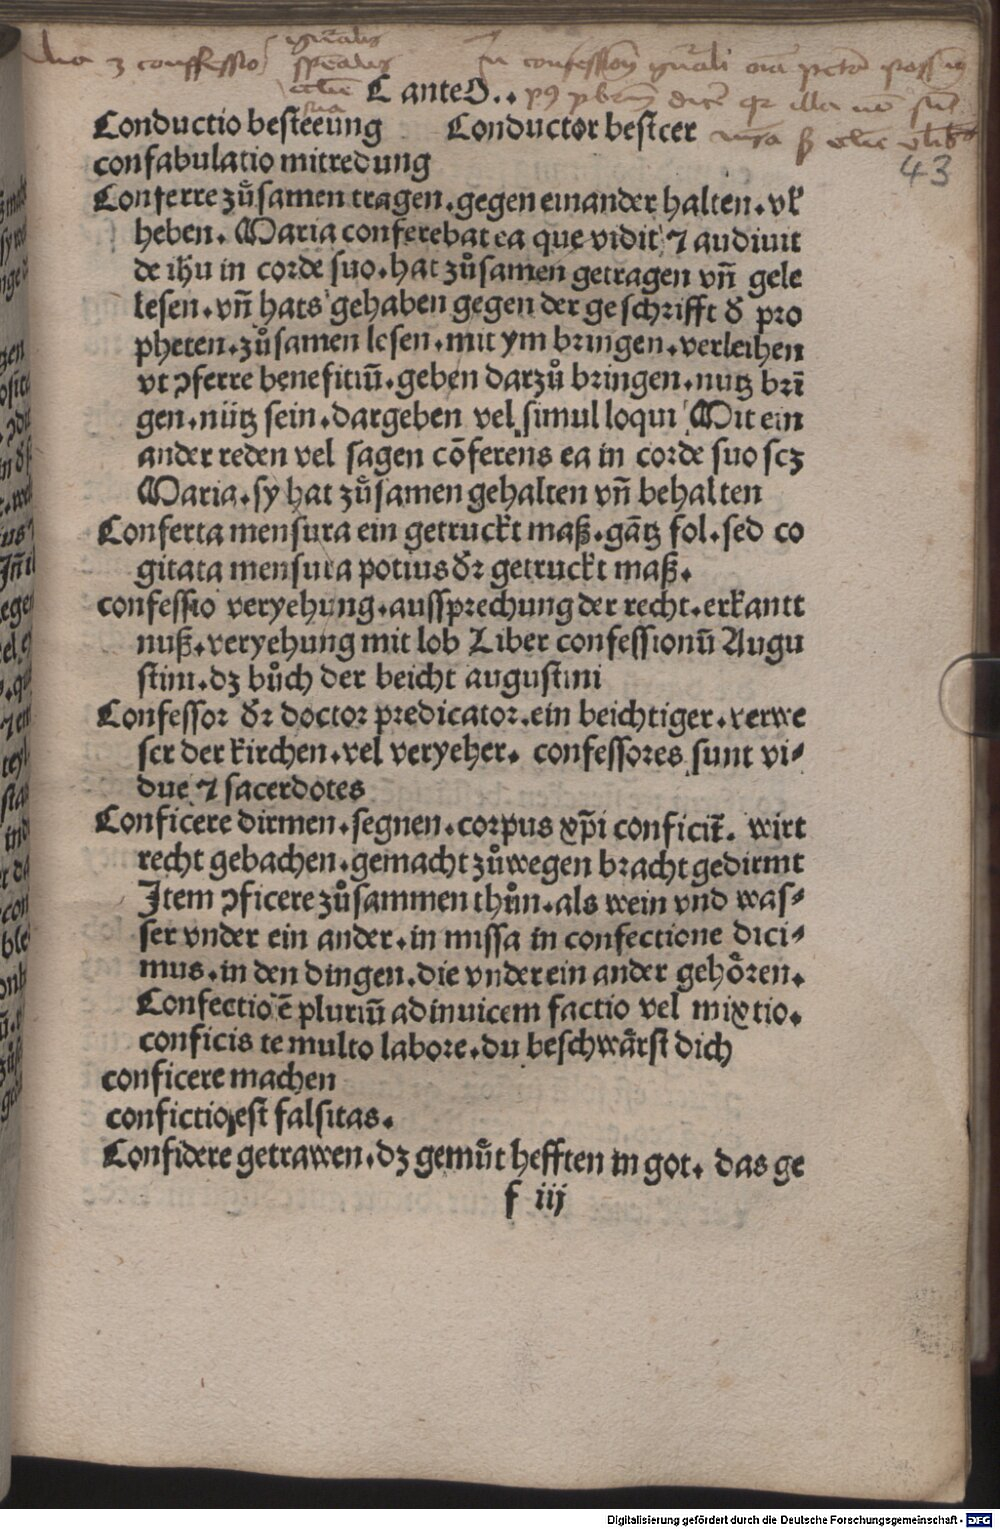 C ante O..
Conductio besteeung Conductor besteer
confabulatio mitredung
43
Conferre zůsamen tragen.gegen einander halten.vff
heben. Maria conferebat ea que vidit ⁊ audiuit
de ihu in corde suo.hat zůsamen getragen vñ gele
lesen.vñ hats gehaben gegen der geschrifft d̕ pro
pheten.zůsamen lesen.mit ym bringen.verleihen
vt ꝯferre benefitiū.geben darzů bringen.nutz brī
gen.nütz sein.dargeben vel simul loqui Mit ein
ander reden vel sagen cōferens ea in corde suo scz
Maria.sy hat zůsamen gehalten vñ behalten
Conferta mensura ein getruckt maß.gātz fol.sed co
gitata mensura potius dr̄ getruckt maß.
confessio veryehung.aussprechung der recht.erkantt
nuß.veryehung mit lob Liber confessionū Augu
stini.dz bůch der beicht augustini
Confessor dr̄ doctor predicator.ein beichtiger.verwe
ser der kirchen.vel veryeher. confessores sunt vi-
due ⁊ sacerdotes
Conficere dirmen.segnen.corpus xp̄i conficit̄. wirt
recht gebachen.gemacht zůwegen bracht gedirmt
Item ꝯficere zůsammen thůn.als wein vnd was-
ser vnder ein ander.in missa in confectione dici-
mus.in den dingen.die vnder ein ander gehören.
Confectio ē pluriū adinuicem factio vel mixtio.
conficis te multo labore.du beschwärst dich
conficere machen
confictio est falsitas.
Confidere getrawen.dz gemüt hefften in got. das ge
f iij
Digitalisierung gefördert durch die Deutsche Forschungsgemeinschaft - DFG